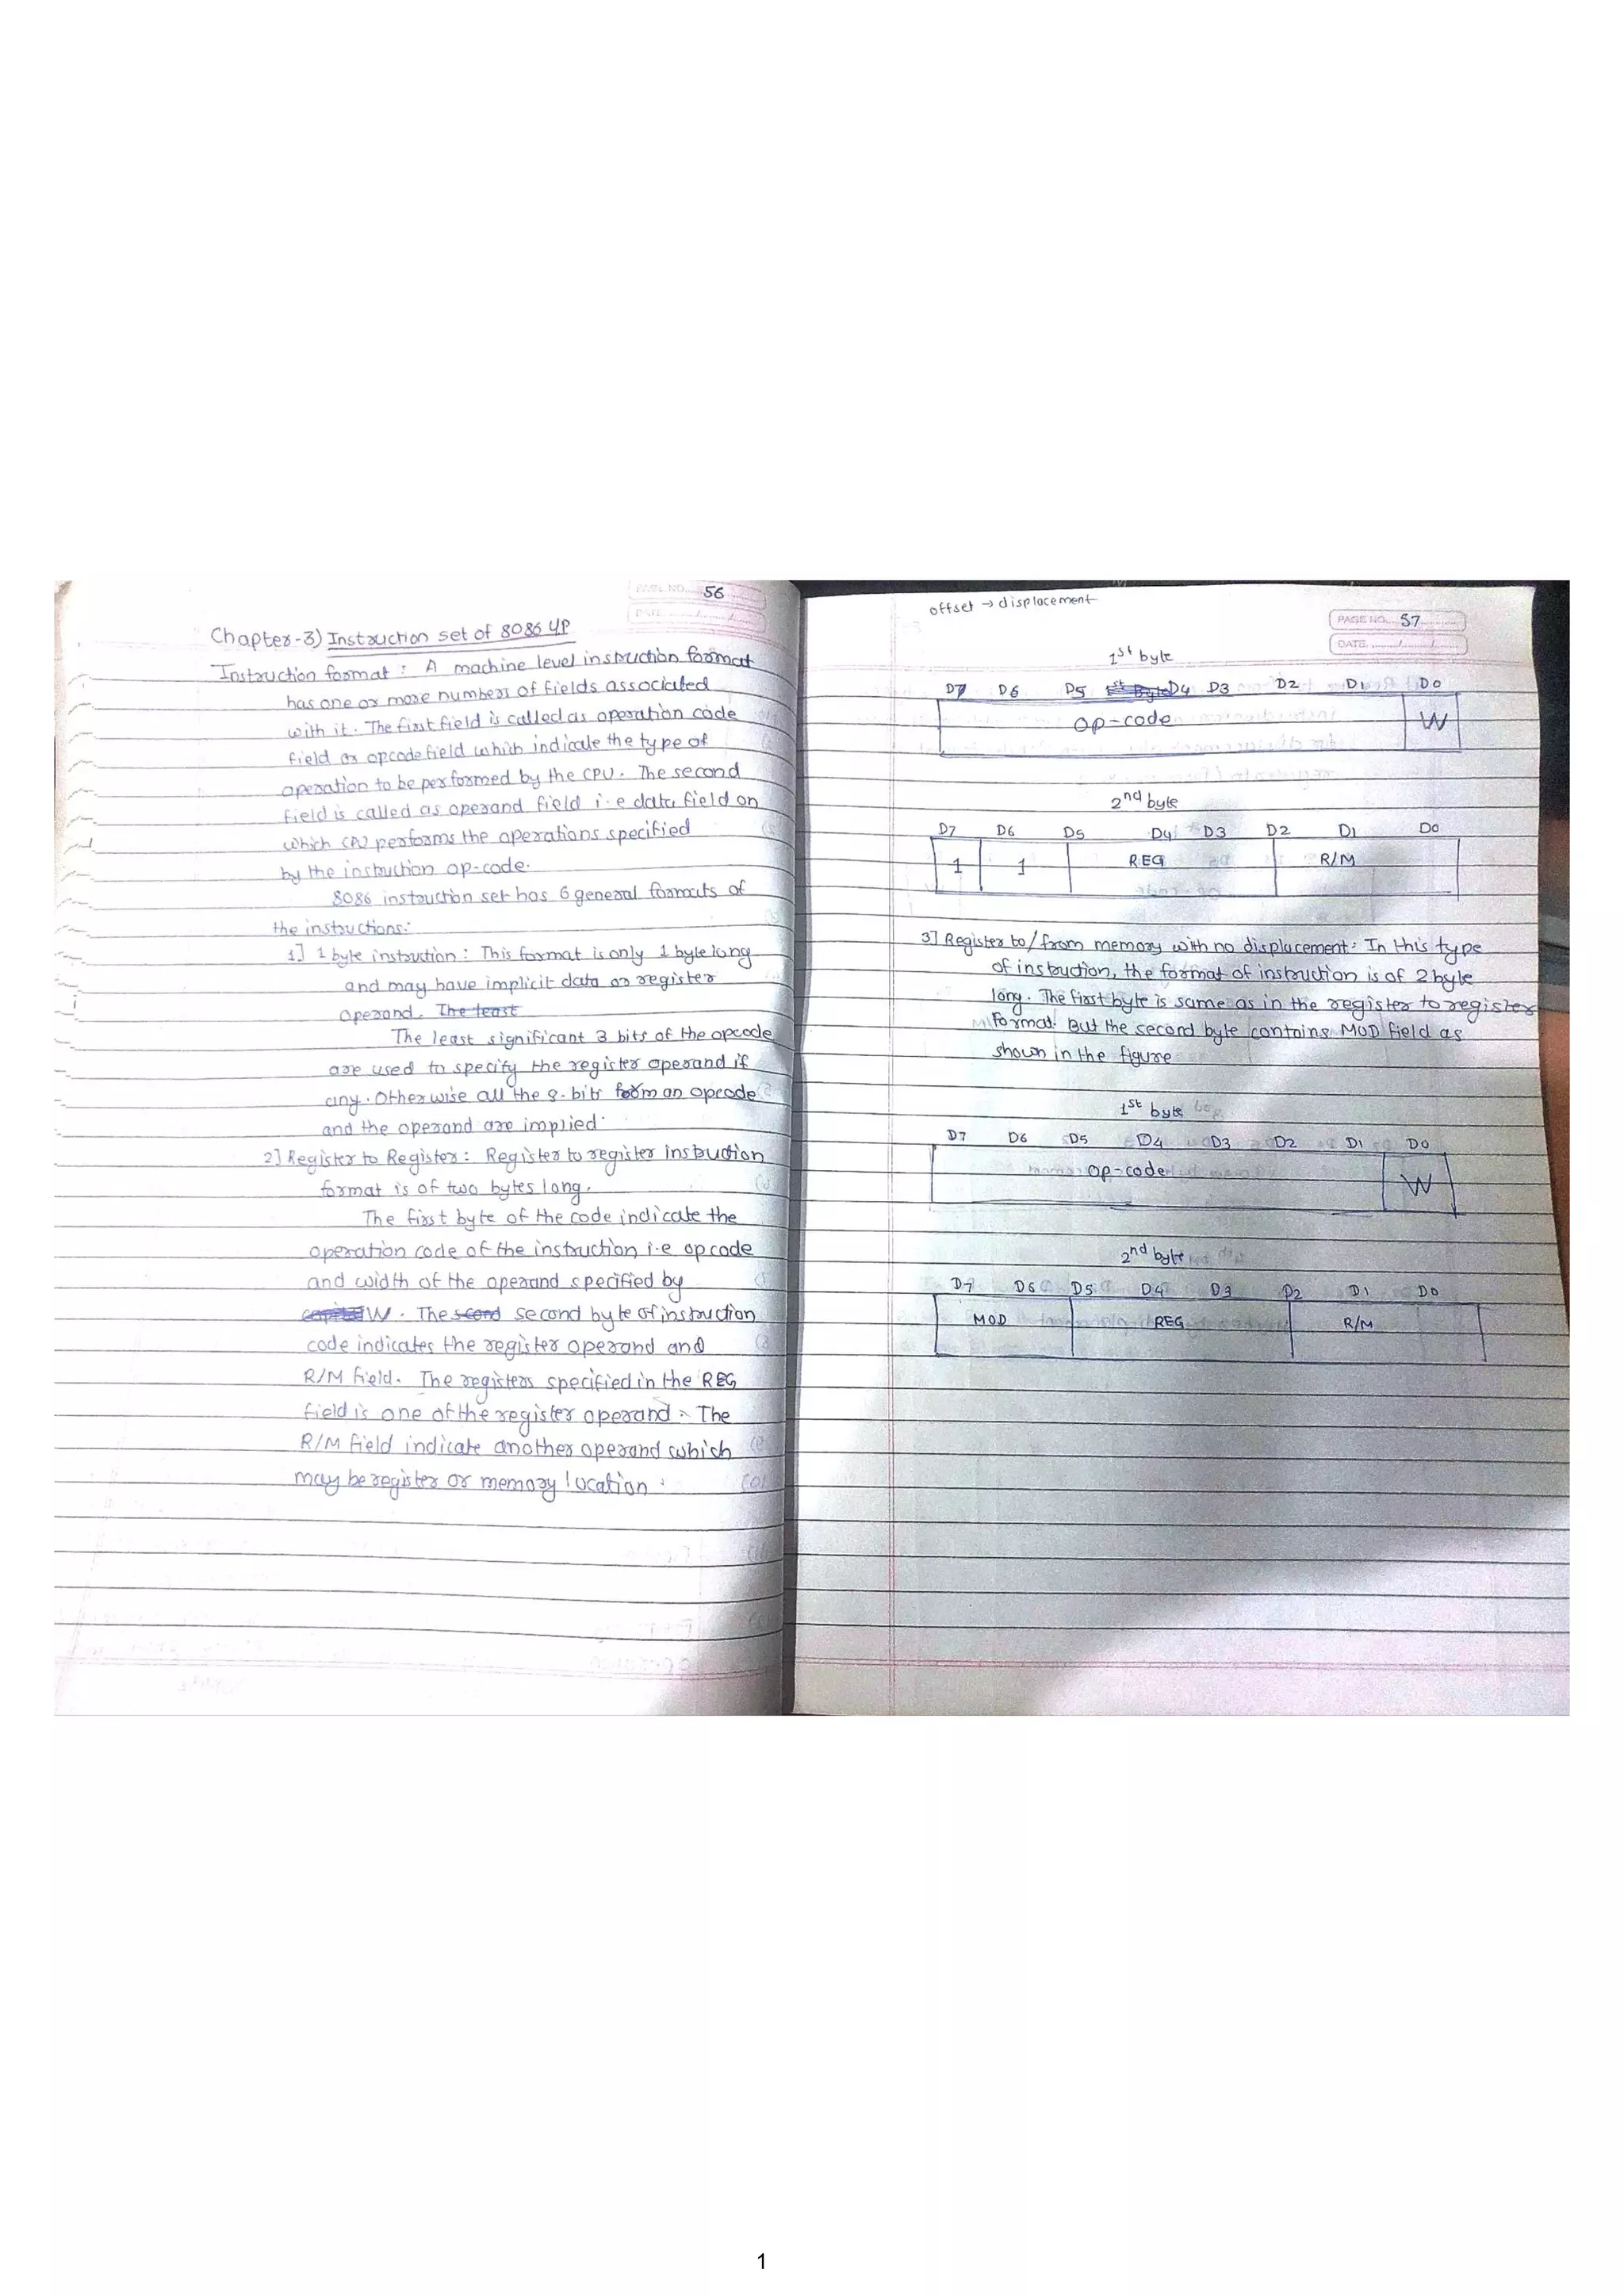 PAGE NO. 56
DATE
Chapter-3) Instruction set of 8086 µP
Instruction format : A machine level instruction format
has one or more numbers of fields associated
with it. The first field is called as operation code
field or opcode field which indicate the type of
operation to be performed by the CPU. The second
field is called as operand field i.e data field on
which CPU performs the operations specified
by the instruction op-code.
8086 instruction set has 6 general formats of
the instructions:
1] 1 byte instruction : This format is only 1 byte long
and may have implicit data or register
operand. The least
The least significant 3 bits of the opcode
are used to specify the register operand if
any. Otherwise all the 8-bits form an opcode
and the operand are implied.
2] Register to Register : Register to register instruction
format is of two bytes long.
The first byte of the code indicate the
operation code of the instruction i.e opcode
and width of the operand specified by
W. The second byte of instruction
code indicates the register operand and
R/M field. The registers specified in the REG
field is one of the register operand. The
R/M field indicate another operand which
may be register or memory location.
offset → displacement
PAGE NO. 57
DATE
1st byte
D7 D6 D5 1st Byte D4 D3 D2 D1 D0
op-code W
2nd byte
D7 D6 D5 D4 D3 D2 D1 D0
1 1 REG R/M
3] Register to/from memory with no displacement: In this type
of instruction, the format of instruction is of 2 byte
long. The first byte is same as in the register to register
format. But the second byte contains MOD field as
shown in the figure
1st byte
D7 D6 D5 D4 D3 D2 D1 D0
op-code W
2nd byte
D7 D6 D5 D4 D3 D2 D1 D0
MOD REG R/M
1